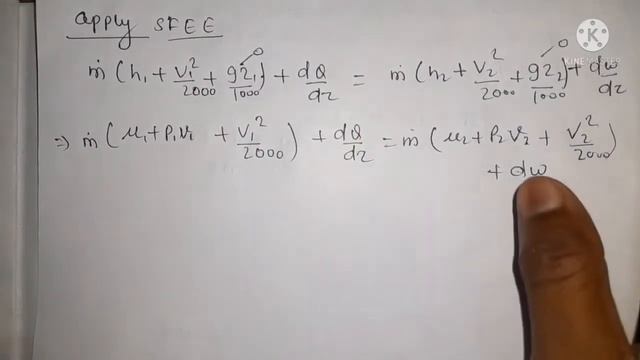 apply SFEE
ṁ(h₁ + V₁²/2000 + gz₁/1000) + dQ/dz = ṁ(h₂ + V₂²/2000 + gz₂/1000) + dw/dz
0 0
⇒ ṁ(u₁ + P₁v₁ + V₁²/2000) + dQ/dz = ṁ(u₂ + P₂v₂ + V₂²/2000)
+ dw
K